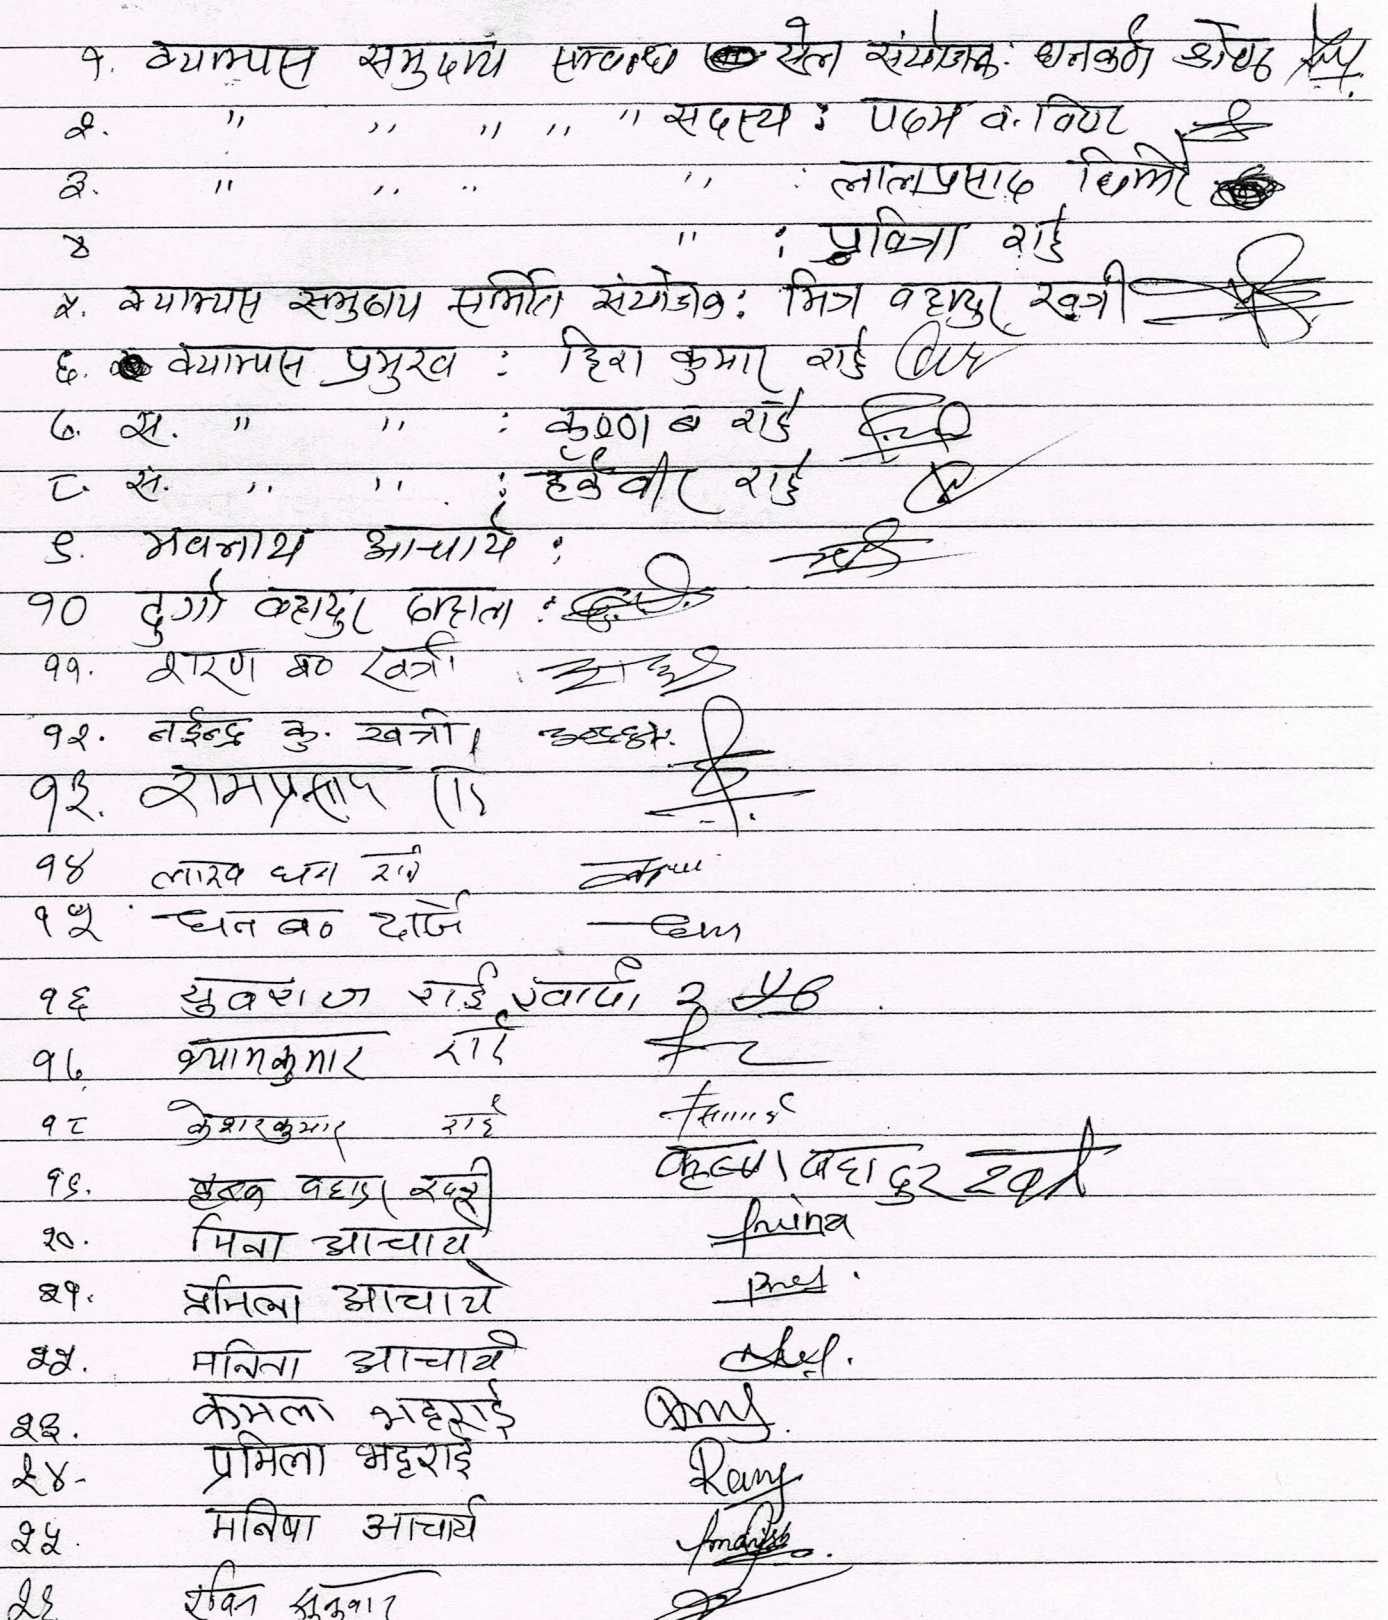 १. क्याम्पस समुदाय सम्बन्ध सेल संयोजक: धनकर्ण श्रेष्ठ
२. " " " " " सदस्य : पदम ब. विष्ट
३. " " " " : लालप्रसाद घिमिरे
४ " : पवित्रा राई
५. क्याम्पस समुदाय समिति संयोजक: मित्र बहादुर खत्री
६. क्याम्पस प्रमुख : हिरा कुमार राई
७. स. " " : कृष्ण ब राई
८. स. " " : हर्कवीर राई
९. भवनाथ आचार्य :
१० दुर्गा बहादुर दाहाल :
११. शरण ब० खत्री
१२. नईन्द्र कु. खत्री
१३. रामप्रसाद राई
१४ लाख धन राई
१५ धन ब० दर्जि
१६ युवराज राई
१७ श्यामकुमार राई
१८ केशरकुमार राई
१९. बहादुर खत्री कृष्ण बहादुर खत्री
२०. मिना आचार्य
२१. प्रमिला आचार्य
२२. मनिता आचार्य
२३. कमला भट्टराई
२४- प्रमिला भट्टराई
२५. मनिषा आचार्य
२६ रविन सुनुवार